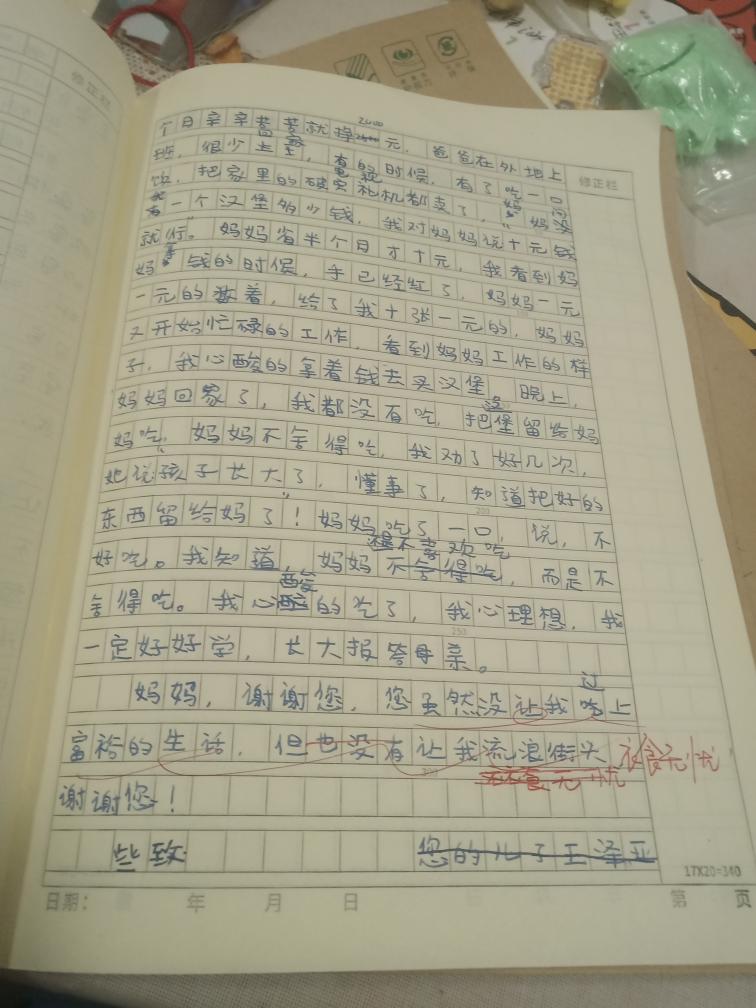 修正栏
2400
个日辛辛苦苦就挣元，爸爸在外地上
班，很少上，有的时候，有了吃一口
饭，把家里的破实礼机都卖了，妈妈没问
一个汉堡多少钱，我对妈妈说十元钱
就行。妈妈省半个日才十元，我看到妈
妈拿钱的时候，手已经红了，妈妈一元
一元的着，给了我十张一元的，妈妈
又开始忙碌的工作，看到妈妈工作的样
子，我心酸的拿着钱去买汉堡，晚上，
妈妈回家了，我都没有吃，把汉堡留给妈
妈吃，妈妈不舍得吃，我劝了好几次，
她说孩子长大了，懂事了，知道把好的
东西留给妈了！妈妈吃了一口，说，不
是不喜欢吃
好吃。我知道，妈妈不舍得吃，而是不
舍得吃。我心酸的吃了，我心理想，我
一定好好学，长大报答母亲。
妈妈，谢谢您，您虽然没让我过上
富裕的生活，但也没有让我流浪街头 衣食无忧
谢谢您！
些致 您的儿子王泽亚
17X20=340
日期： 年 月 日 第 页
修正栏